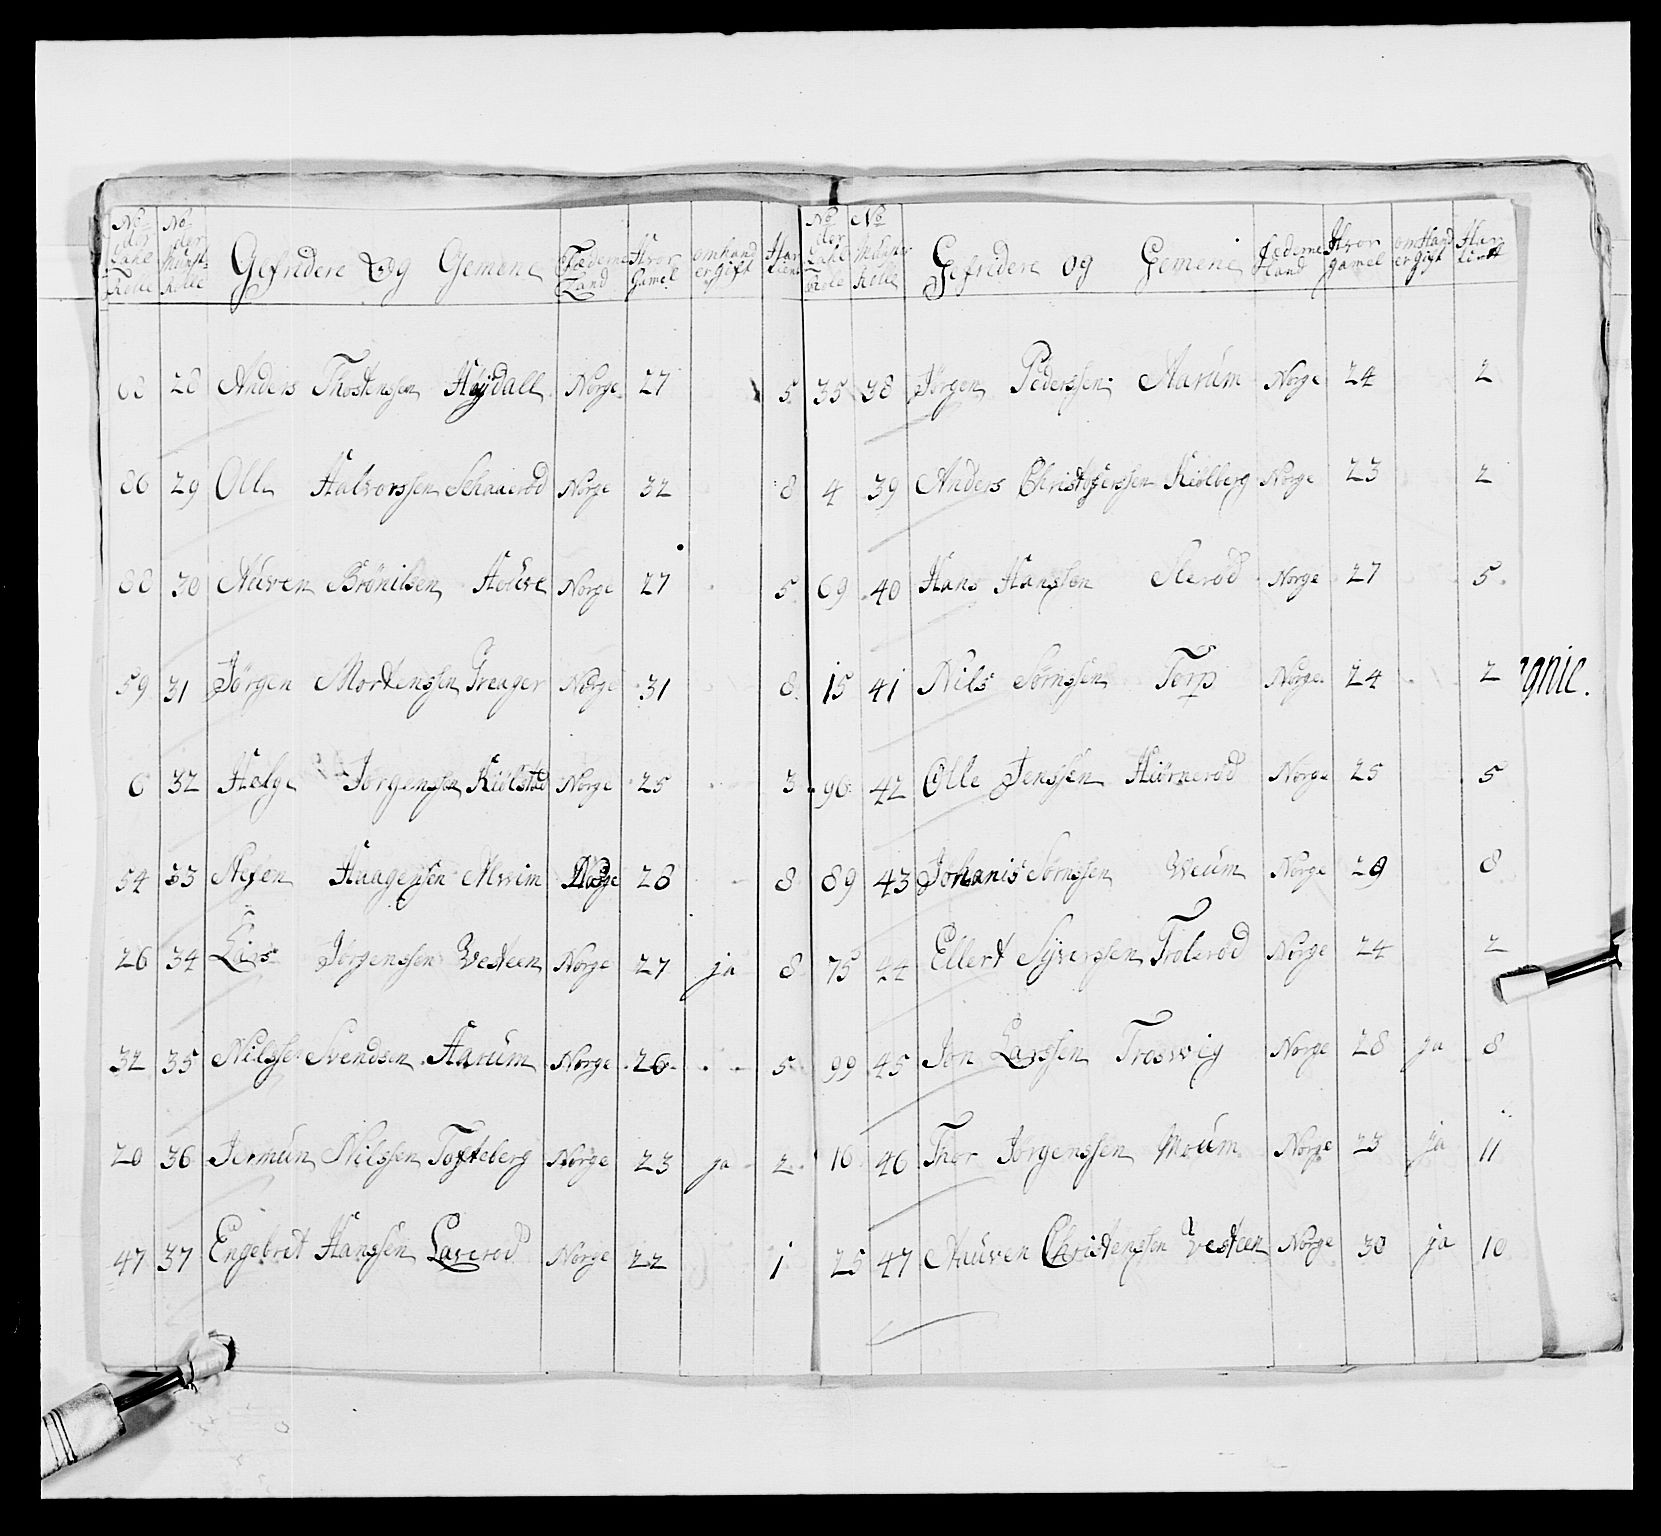 No der Tahl Rolle No der Mönst Rolle Gefredere Og Gemene Fæderne Land Hvor Gamel om hand er gift Har tient
68 28 Anders Thostensen Høydall Norge 27 5
86 29 Olle Halvorssen Schauerød Norge 32 8
88 30 Auven Brönilsen Houve Norge 27 5
59 31 Jörgen Mortenssen Greager Norge 31 8
6 32 Helge Jorgenssen Kiölstad Norge 25 3
54 33 Haagensen Norge 28 8
26 34 Lars Jörgenssen Vesteen Norge 27 ja 8
32 35 Nilsse Svendsen Aarum Norge 26 5
20 36 Jermun Nilssen Tofteberg Norge 23 ja 2
47 37 Engebret Hanssen Laverød Norge 22 1
No der Tahl Rolle No Mönster Rolle Gefredere og Gemene Federne Land Hvor gamel om Hand er Gift Har tient
35 38 Jörgen Pederssen Aarum Norge 24 2
4 39 Anders Christoferssen Kiölberg Norge 23 2
69 40 Hans Hanssen Slerød Norge 27 5
15 41 Nils Sörnssen Torp Norge 24 2
96 42 Olle Jenssen Hiörnerød Norge 25 5
89 43 Johanis Sörnssen Veum Norge 29 8
75 44 Ellert Syverssen Trolerød Norge 24 2
99 45 Jon Larssen Trosvig Norge 28 ja 8
16 46 Thor Jörgenssen Moum Norge 23 ja 11
25 47 Auven Christenssen Vesteen Norge 30 ja 10
gnie.